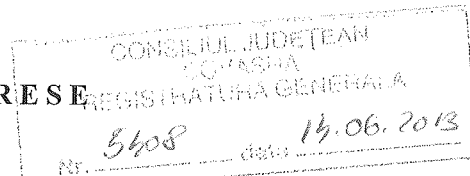 CONSILIUL JUDEȚEAN
COVASNA
RESE
REGISTRATURA GENERALA
Nr. 5408 data 14.06.2013